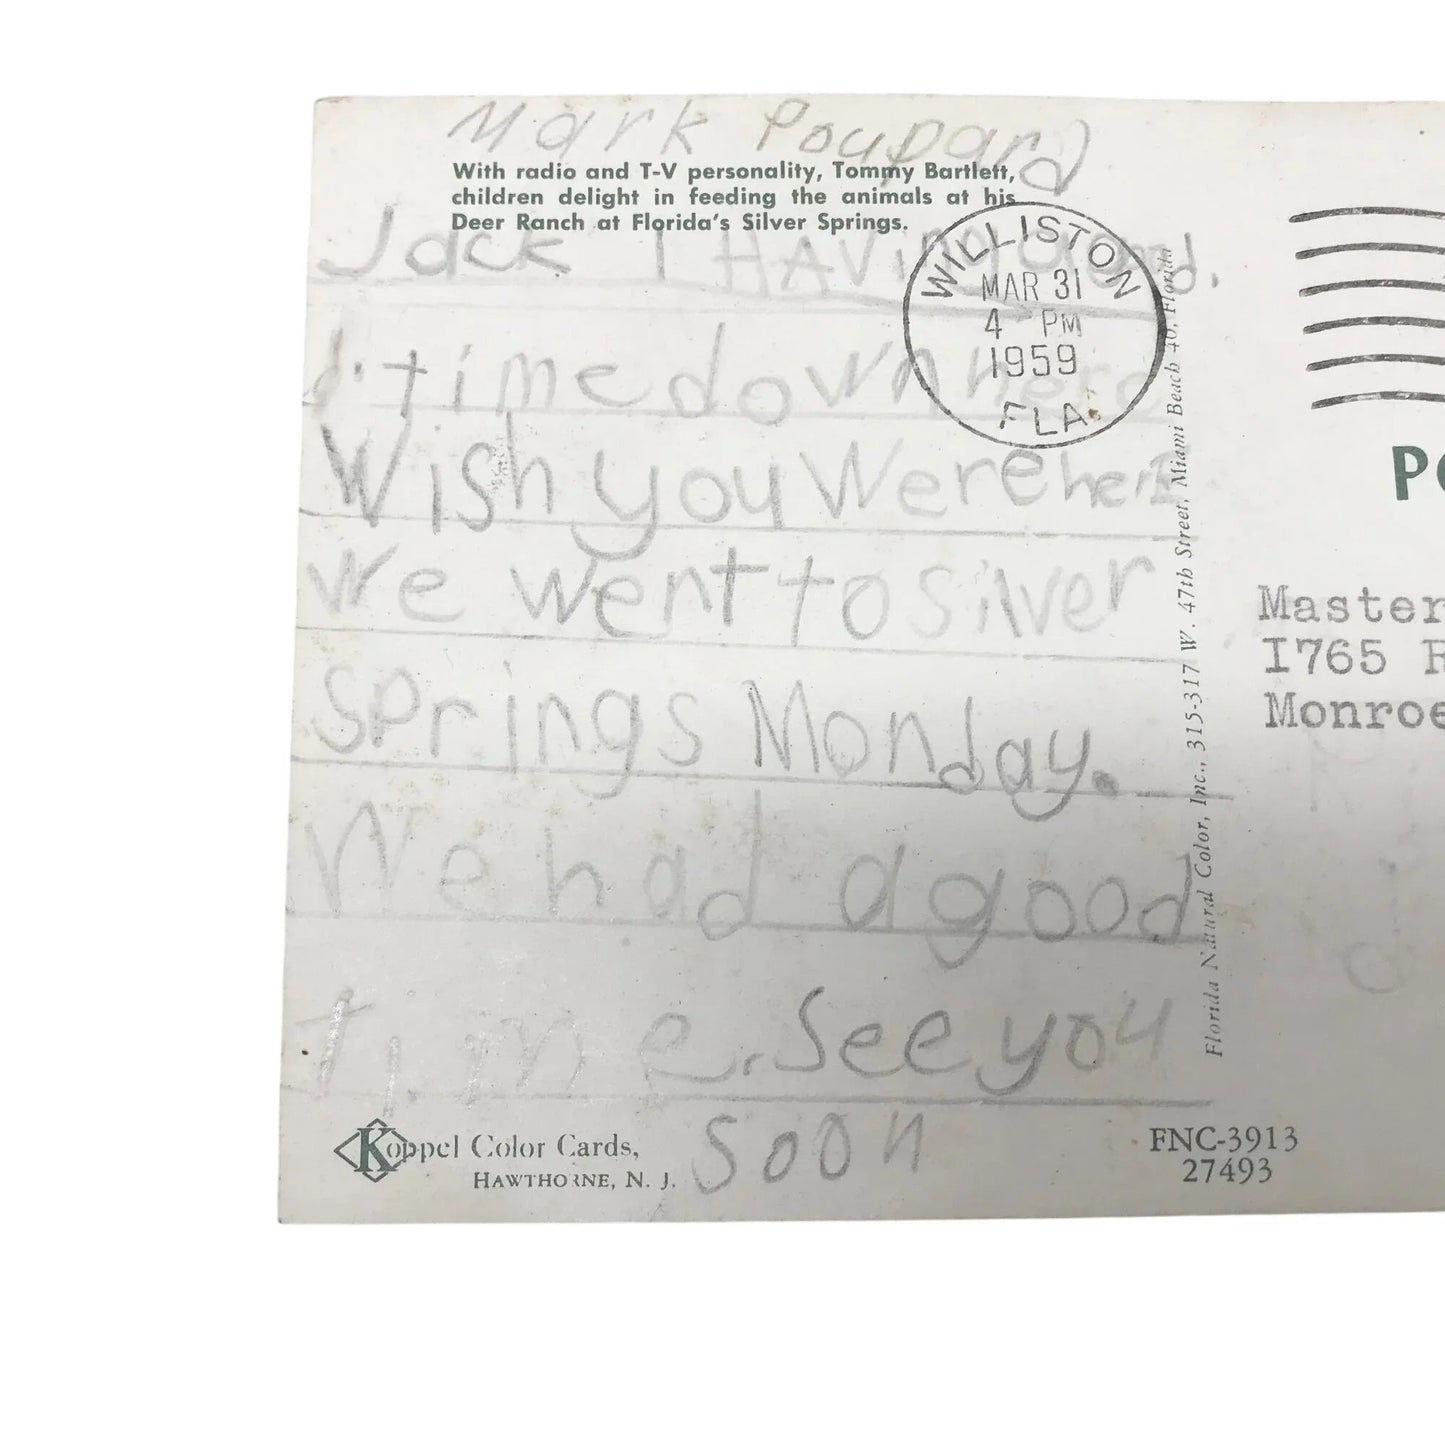 Mark Poupard
With radio and T-V personality, Tommy Bartlett,
children delight in feeding the animals at his
Deer Ranch at Florida's Silver Springs.
Jack I HAVing good.
time down here
Wish you were here
We went to Silver
Springs Monday.
We had a good
time. See you
soon
WILLISTON
MAR 31
4 PM
1959
FLA.
Florida Natural Color, Inc., 315-317 W. 47th Street, Miami Beach 40, Florida
PO
Master
I765
Monroe
Koppel Color Cards,
HAWTHORNE, N. J.
FNC-3913
27493